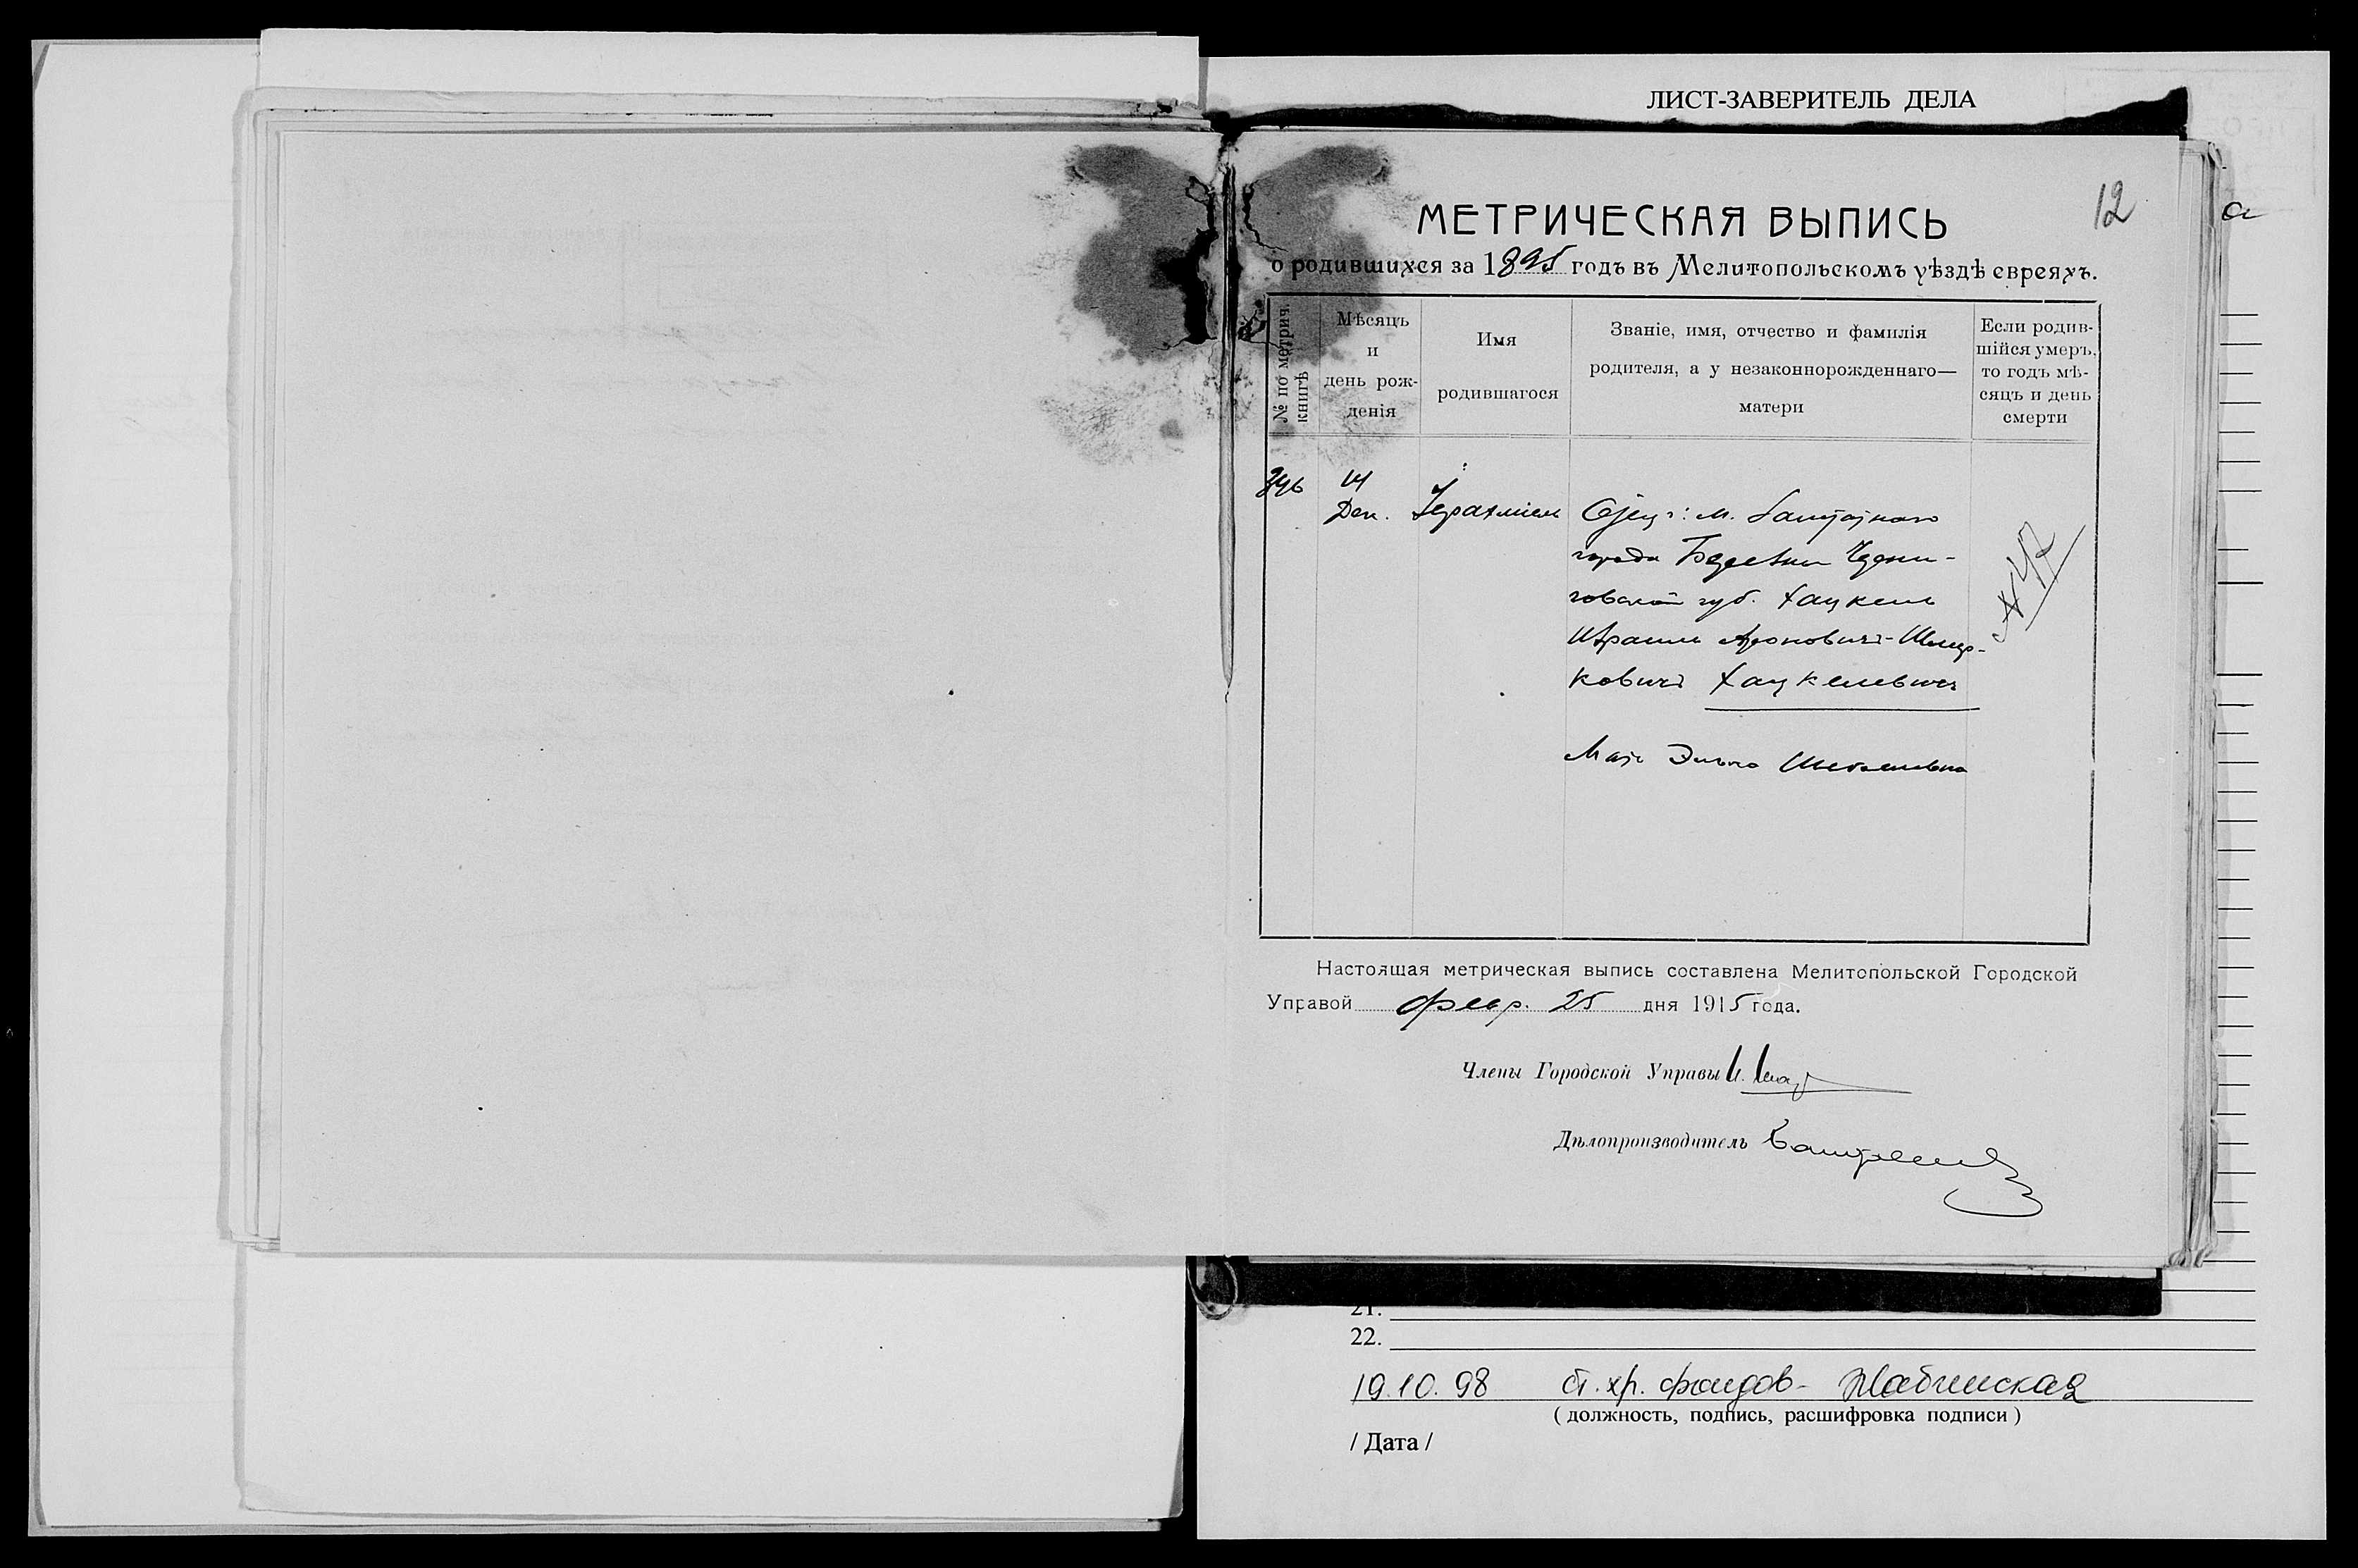 ЛИСТ-ЗАВЕРИТЕЛЬ ДЕЛА
12
МЕТРИЧЕСКАЯ ВЫПИСЬ
о родившихся за 1895 годъ въ Мелитопольскомъ уѣздѣ евреяхъ.
№ по метрич. книгѣ
Мѣсяцъ
и
день рож-
денія
Имя
родившагося
Званіе, имя, отчество и фамилія
родителя, а у незаконнорожденнаго—
матери
Если родив-
шійся умеръ,
то годъ мѣ-
сяцъ и день
смерти
14
Дек.
Іерахміель
Отецъ: м. заштатнаго
города Черни-
говской губ. Хацкель
Израиль Ароновичъ-
ковичъ Хацкелевичъ
Мать Элька
№ 47
Настоящая метрическая выпись составлена Мелитопольской Городской
Управой февр. 25 дня 1915 года.
Члены Городской Управы
Дѣлопроизводитель
21.
22.
19.10.98 ст. хр. фондов-
( должность, подпись, расшифровка подписи )
/ Дата /